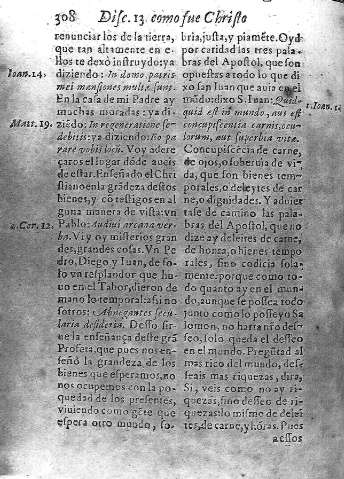 308 Disc. 13. como fue Christo
renunciar los de la tierra,
que tan altamente en e-
llos te dexò instruydo: ya
diziendo: In domo patris
mei mansiones multæ sunt.
En la casa de mi Padre ay
muchas moradas: ya di-
ziẽdo: In regeneratione se-
debitis: ya diziendo:
pare vobis locũ. Voy adere
çaros el lugar dõde aueis
de estar. Enseñado el Chri
stiano en la grãdeza destos
bienes, y cõ testigos en al
guna manera de vista: vn
Pablo: Audiui arcana ver-
ba. Vi y oy misterios gran
des, grandes cosas. Vn Pe
dro, Diego y Iuan, de so-
lo vn resplandor que hu-
uo en el Tabor, dieron de
mano lo temporal: assi no
sotros: Abnegantes secu-
laria desideria. Desso sir-
ue la enseñança deste grã
Profeta, que pues nos en-
señò la grandeza de los
bienes que esperamos, no
nos ocupemos con la po-
quedad de los presentes,
viuiendo como gẽte que
espera otro mundo, so-
Ioan. 14.
Matt. 19.
2. Cor. 12.
bria, justa, y piamẽte. Oyd
por caridad las tres pala-
bras del Apostol, que son
opuestas a todo lo que di
xo san Iuan que auia en el
mundo: dixo S. Iuan: Quid-
quid est in mundo, aus est
concupiscentia carnis, ocu-
lorum, aut superbia vitæ.
Concupiscẽcia de carne,
de ojos, o soberuia de vi-
da, que son bienes tem-
porales, o deleytes de car
ne, o dignidades. Y aduier
tase de camino las pala-
bras del Apostol, que no
dize ay deleytes de carne,
de honra, o bienes tempo
rales, sino codicia sola-
mente: porque como to-
do quanto ay en el mun-
do, aunque se possea todo
junto como lo posseyò Sa
lomon, no harta nro desse-
o, solo queda el desseo
en el mundo. Pregũtad al
mas rico del mundo, des-
seais mas riquezas, dira,
Si, veis como no ay ri-
quezas, sino desseo de ri-
quezas: lo mismo de delei
tes, de carne, y hõras. Pues
aessos
1. Ioan.